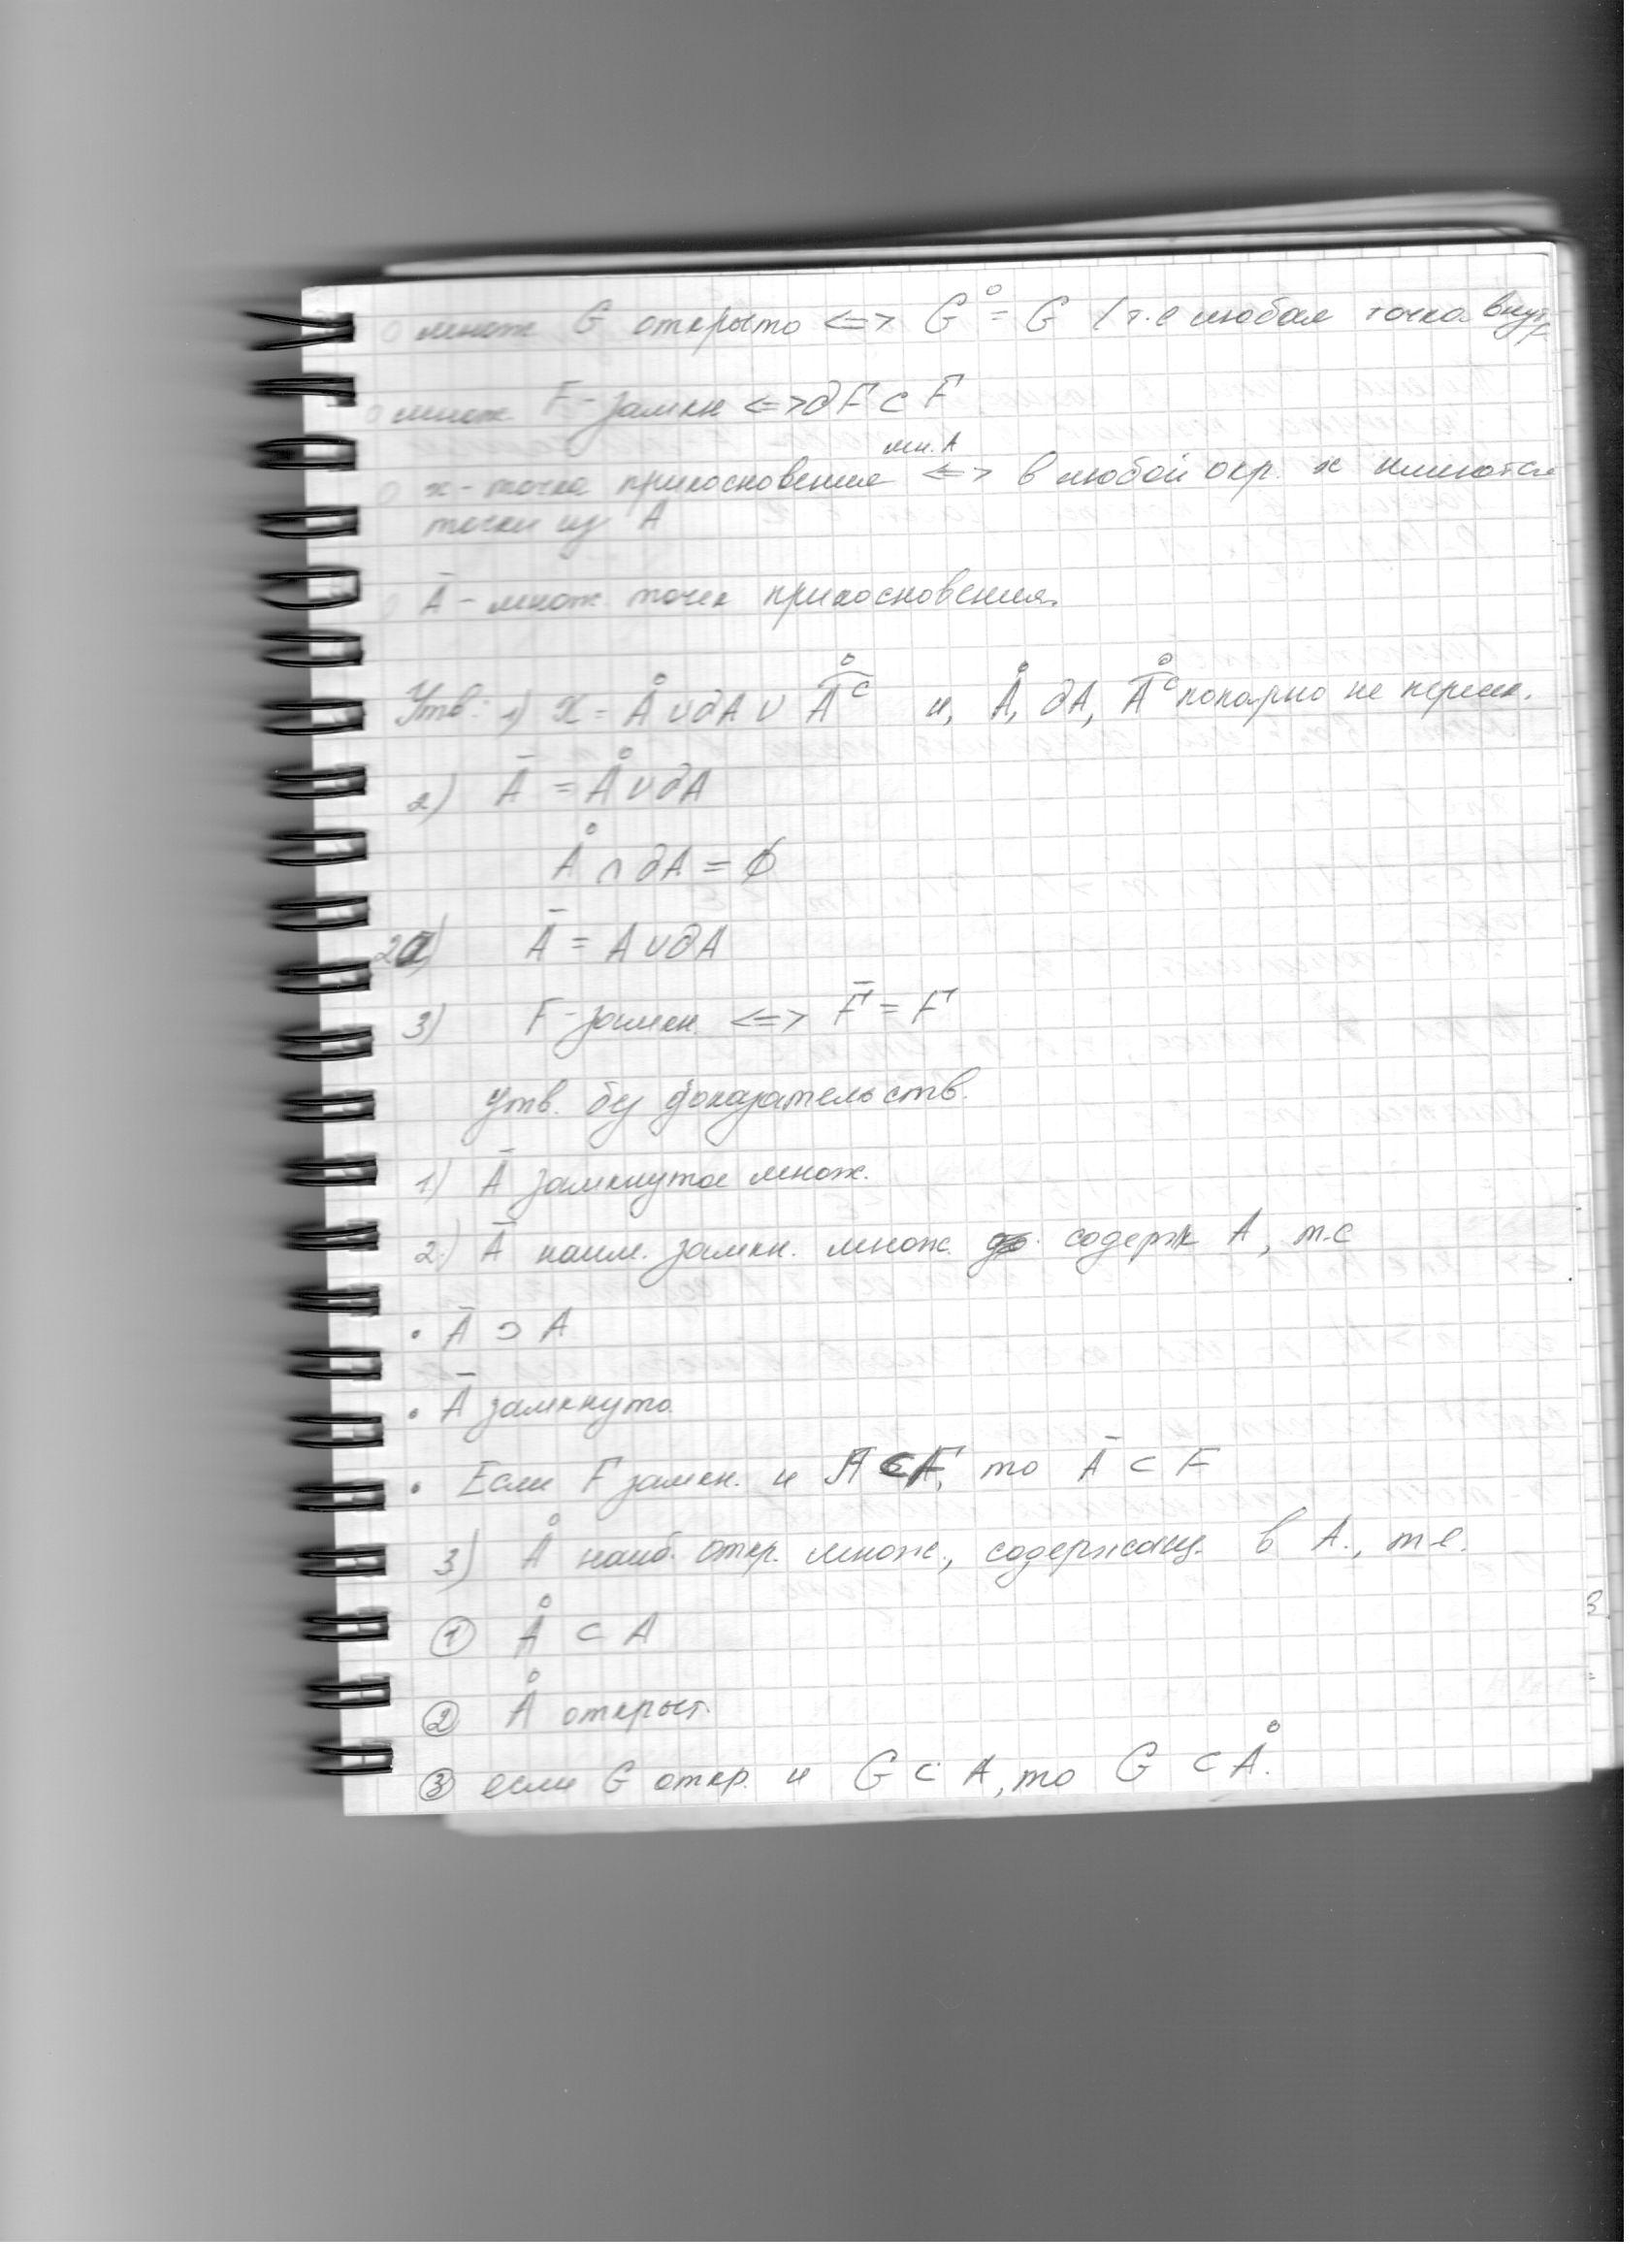 множ G открыто <=> G̊ = G (т.е любая точка внутр
множ. F - замкн <=> ∂F ⊂ F
x - точка прикосновения мн. A <=> в любой окр. x имеются
точки из A
Ā - множ точек прикосновения.
Утв: 1) X = Å ∪ ∂A ∪ Å͡ᶜ и, Å, ∂A, Å͡ᶜ попарно не перес.
2) Ā = Å ∪ ∂A
Å ∩ ∂A = ∅
2а) Ā = A ∪ ∂A
3) F - замкн <=> F̄ = F
Утв. без доказательств.
1) Ā замкнутое множ.
2) Ā наим. замкн. множ. содерж A, т.е
• Ā ⊃ A
• Ā замкнуто
• Если F замкн. и A ⊂ F, то Ā ⊂ F
3) Å наиб. откр. множ., содержащ. в A., т.е.
① Å ⊂ A
② Å открыт.
③ если G откр. и G ⊂ A, то G ⊂ Å.